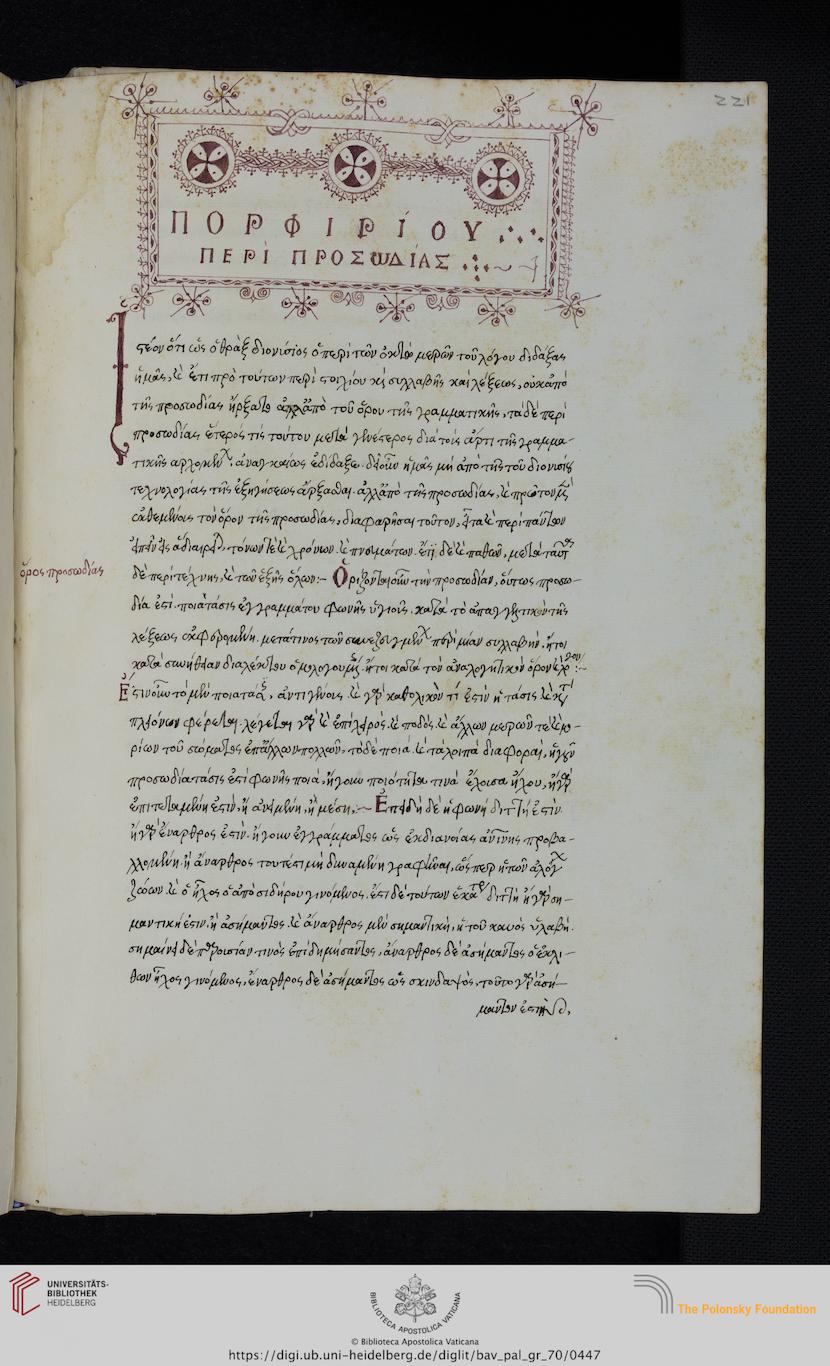 221
ΠΟΡΦΙΡΙΟΥ
ΠΕΡΙ ΠΡΟΣΩΔΙΑΣ
Ἰστέον ὅτι ὡς ὁ θρὰξ διονύσιος ὁ περὶ τῶν ὀκτὼ μερῶν τοῦ λόγου διδάξας
ἡμᾶς, καὶ ἔτι πρὸ τούτων περὶ στοιχίου καὶ συλλαβῆς καὶ λέξεως, οὐκ ἀπὸ
τῆς προσωδίας ἤρξατο ἀλλ' ἀπὸ τοῦ ὅρου τῆς γραμματικῆς, τὰ δὲ περὶ
προσωδίας ἕτερός τις τούτου μετα γενέστερος διὰ τοὺς ἄρτι τῆς γραμμα-
τικῆς ἀρχομένους ἀναγκαίως ἐδίδαξε. δέον ἡμᾶς μὴ ἀπὸ τῆς τοῦ διονυσίου
τεχνολογίας τῆς ἐξηγήσεως ἄρξασθαι. ἀλλ' ἀπὸ τῆς προσωδίας, καὶ πρῶτον μὲν
ἐκθεμένους τὸν ὅρον τῆς προσωδίας, διασαφῆσαι τοῦτον, εἶτα καὶ περὶ πάντων
τόνων τὲ καὶ χρόνων. καὶ πνευμάτων. ἔτι δὲ καὶ παθῶν, μετὰ ταῦτα
ὅρος προσωδίας
δὲ περὶ τέχνης, καὶ τῶν ἑξῆς ὅλων:- Ὁρίζονται οὖν τὴν προσωδίαν, οὕτως προσω-
δία ἐστὶ. ποιὰ τάσις ἐγγραμμάτου φωνῆς ὑγιοῦς. κατὰ τὸ ἀπαγγελτικὸν τῆς
λέξεως ἐκφερομένη. μετά τινος τῶν συνεζευγμένων περὶ μίαν συλλαβὴν, ἤτοι
κατὰ συνήθειαν διαλέκτου ὁμολογουμένης. ἤτοι κατὰ τὸν ἀναλογητικὸν ὅρον καὶ λόγον:-
Ἔστιν οὖν τὸ μὲν ποιὰ τάσις, ἀντὶ γένους. καὶ γὰρ καθολικόν τί ἐστὶν ἡ τάσις καὶ κατὰ
πλειόνων φέρεται. λέγεται γὰρ καὶ ἐπὶ χειρός. καὶ ποδὸς καὶ ἄλλων μερῶν τὲ καὶ μο-
ρίων τοῦ σώματος ἐπ' ἄλλων πολλῶν, τὸ δὲ ποιὰ. καὶ τὰ λοιπὰ διαφοραὶ, ἤγουν
προσωδία τάσις ἐστὶ φωνῆς ποιὰ, ἤγουν ποιότητα τινὰ ἔχουσα ἤχου, ἢ γὰρ
ἐπιτεταμένη ἐστὶν, ἢ ἀνειμένη, ἢ μέση:- Ἐπειδὴ δὲ ἡ φωνὴ διττή ἐστιν
ἢ γὰρ ἔναρθρος ἐστὶν. ἤγουν ἐγγράμματος ὡς ἐκ διανοίας ἀν τινης προβα-
λλομένη. ἢ ἄναρθρος τουτέστι μὴ δυναμένη γραφῆναι, ὥσπερ ἡ τῶν ἀλόγων
ζώων. καὶ ὁ ἦχος ὁ ἀπὸ σιδήρου γινόμενος, ἔστι δὲ τούτων ἑκατέρα διττὴ ἢ γὰρ ση-
μαντική ἐστιν, ἢ ἀσήμαντος. καὶ ἄναρθρος μὲν σημαντικὴ, ἡ τοῦ κυνὸς ὑλαβὴ.
σημαίνει δὲ παρουσίαν τινὸς ἐπιδημήσαντος, ἄναρθρος δὲ ἀσήμαντος ὁ ἐκ λί-
θων ἦχος γινόμενος, ἔναρθρος δὲ ἀσήμαντος ὡς σκινδαψὸς, τοῦτο γὰρ ἀσή-
μαντον ἐστὶν
UNIVERSITÄTS-
BIBLIOTHEK
HEIDELBERG
BIBLIOTECA APOSTOLICA VATICANA
The Polonsky Foundation
© Biblioteca Apostolica Vaticana
https://digi.ub.uni-heidelberg.de/diglit/bav_pal_gr_70/0447